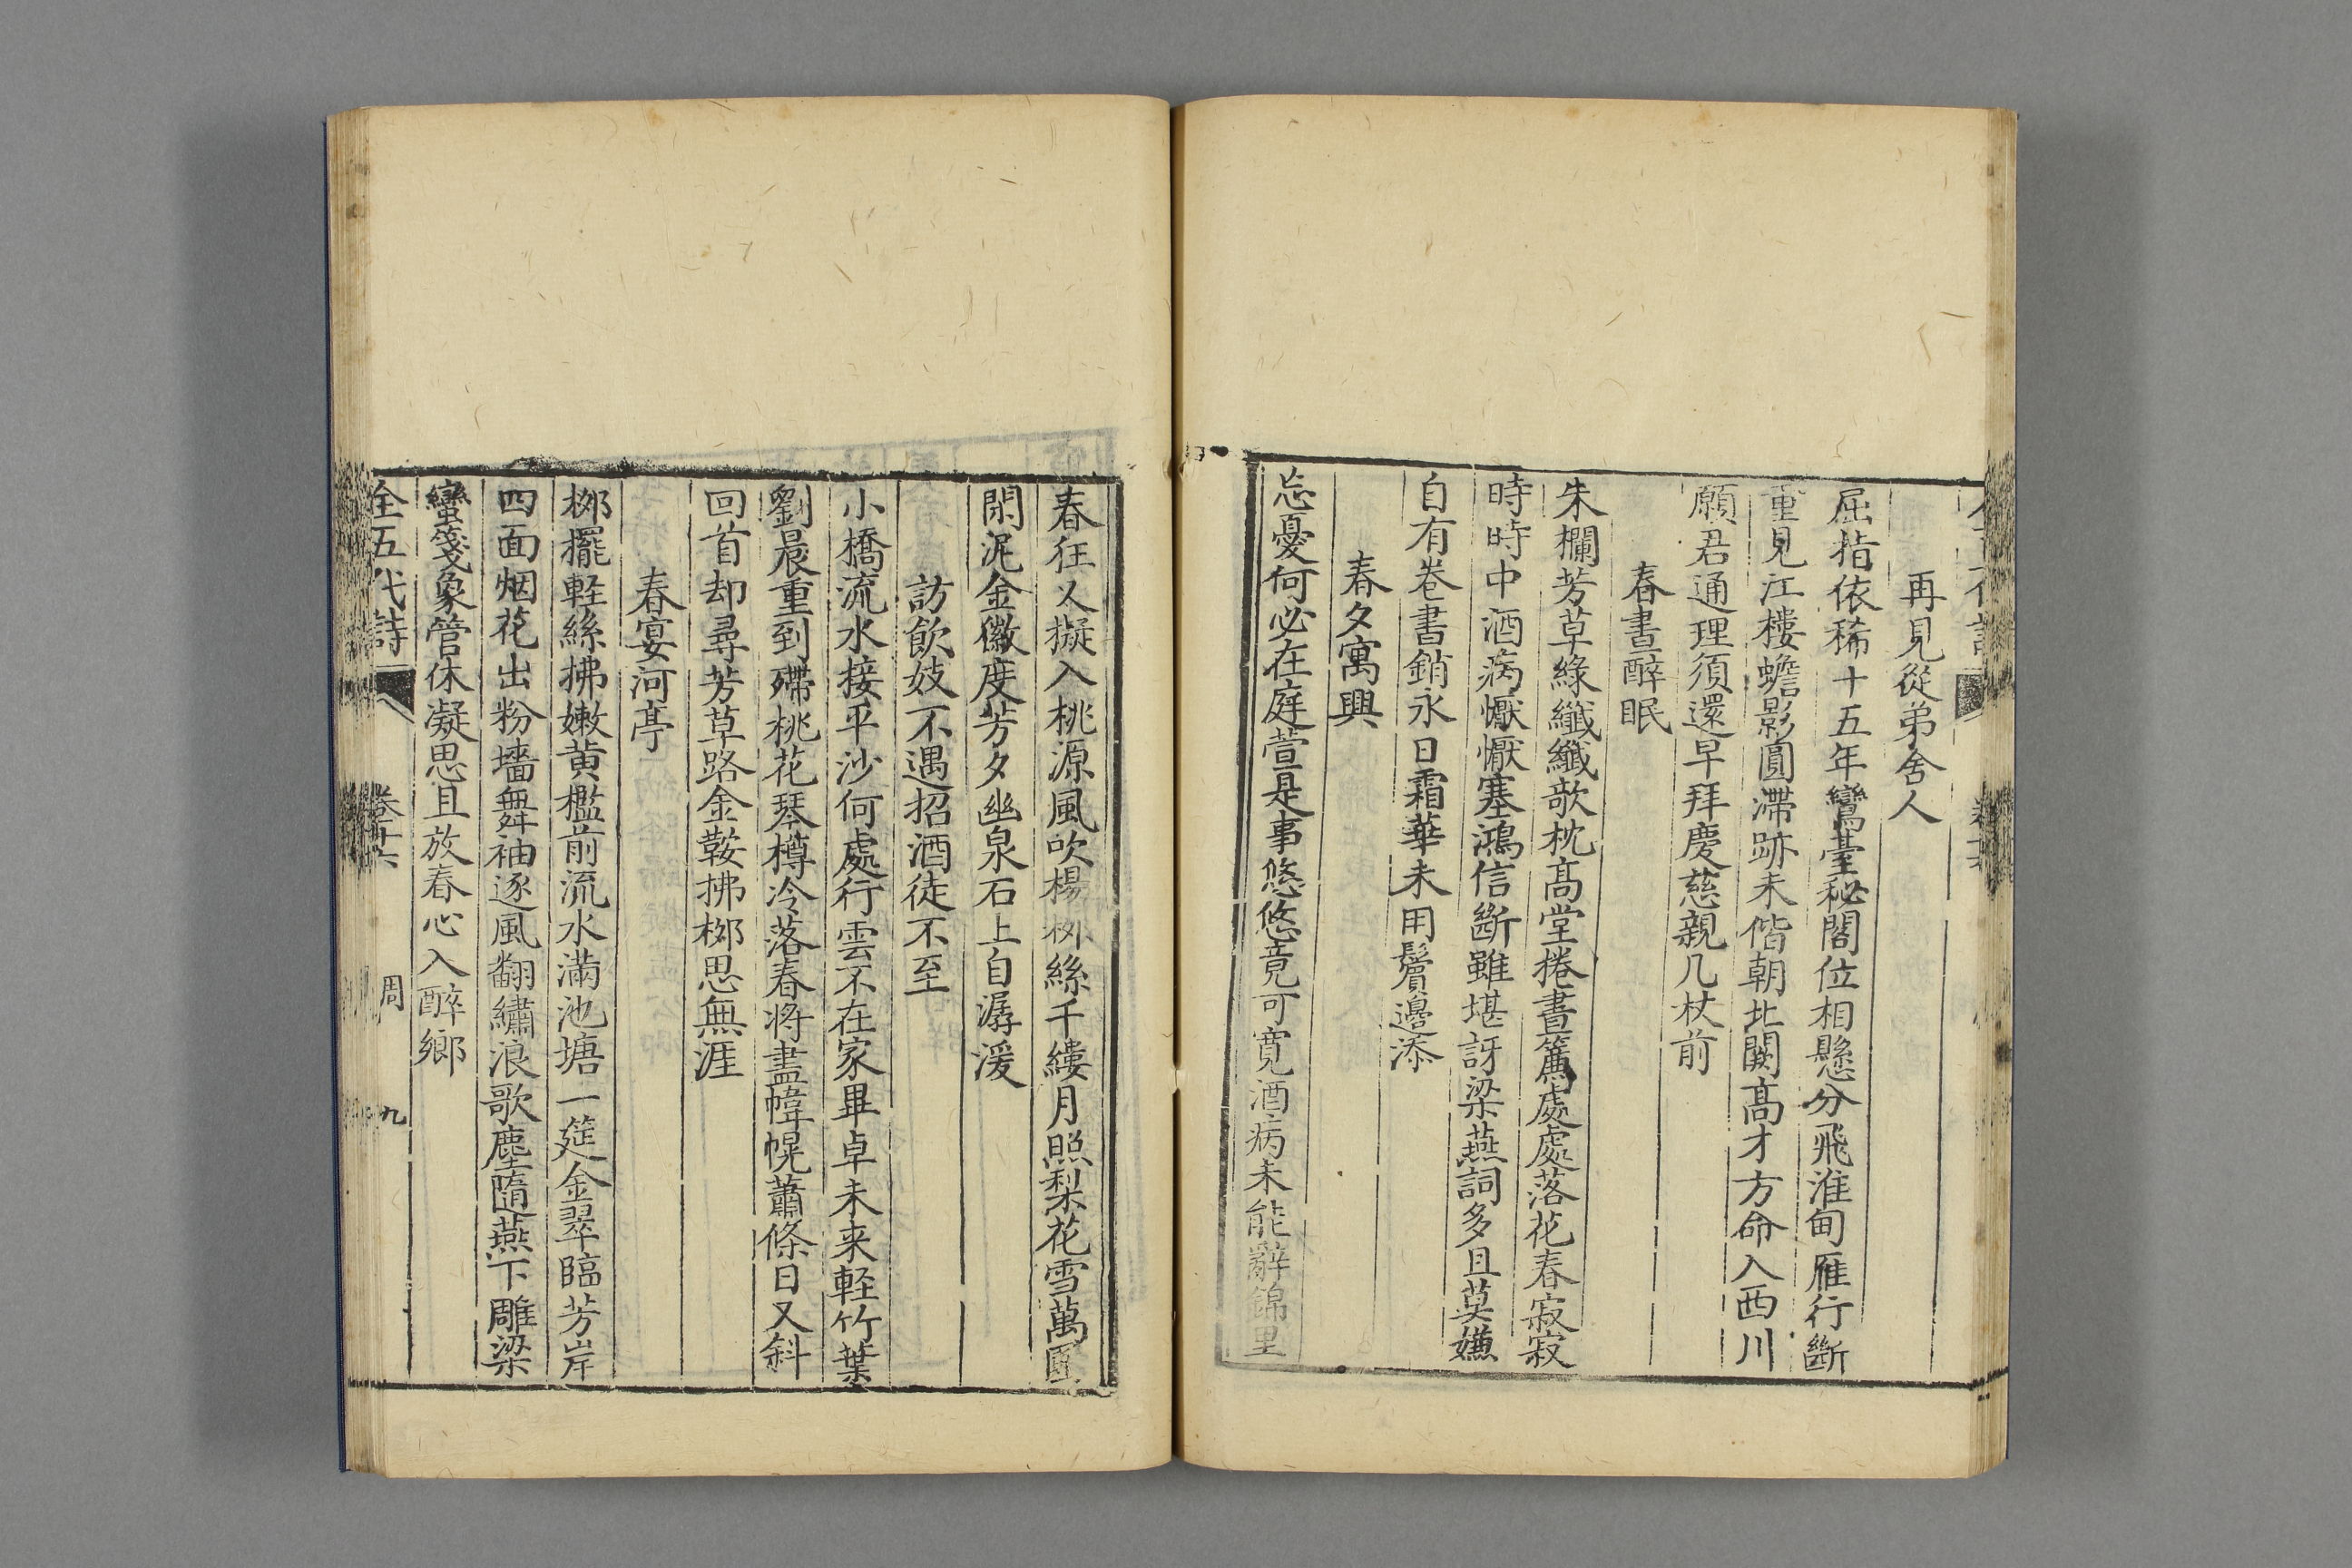 再見從弟舍人
屈指依稀十五年鸞臺秘閣位相懸分飛淮甸雁行斷
重見江樓蟾影圓滯跡未偕朝北闕高才方命入西川
願君通理須還早拜慶慈親几杖前
春晝醉眠
朱欄芳草綠纖纖欹枕高堂捲畫簾處處落花春寂寂
時時中酒病懨懨塞鴻信斷雖堪訝梁燕詞多且莫嫌
自有卷書銷永日霜華未用鬢邊添
春夕寓興
忘憂何必在庭萱是事悠悠竟可寬酒病未能辭錦里
春狂又擬入桃源風吹楊柳絲千縷月照梨花雪萬團
閑泥金徽度芳夕幽泉石上自潺湲
訪飲妓不遇招酒徒不至
小橋流水接平沙何處行雲不在家畢卓未来軽竹葉
劉晨重到殢桃花琴樽冷落春將盡幃幌蕭條日又斜
回首却尋芳草路金鞍拂桞思無涯
春宴河亭
桞擺軽絲拂嫩黄檻前流水滿池塘一筵金翠臨芳岸
四面烟花出粉墻舞袖逐風翻繡浪歌塵隨燕下雕梁
蠻箋象管休凝思且放春心入醉鄉
全五代詩
周
九